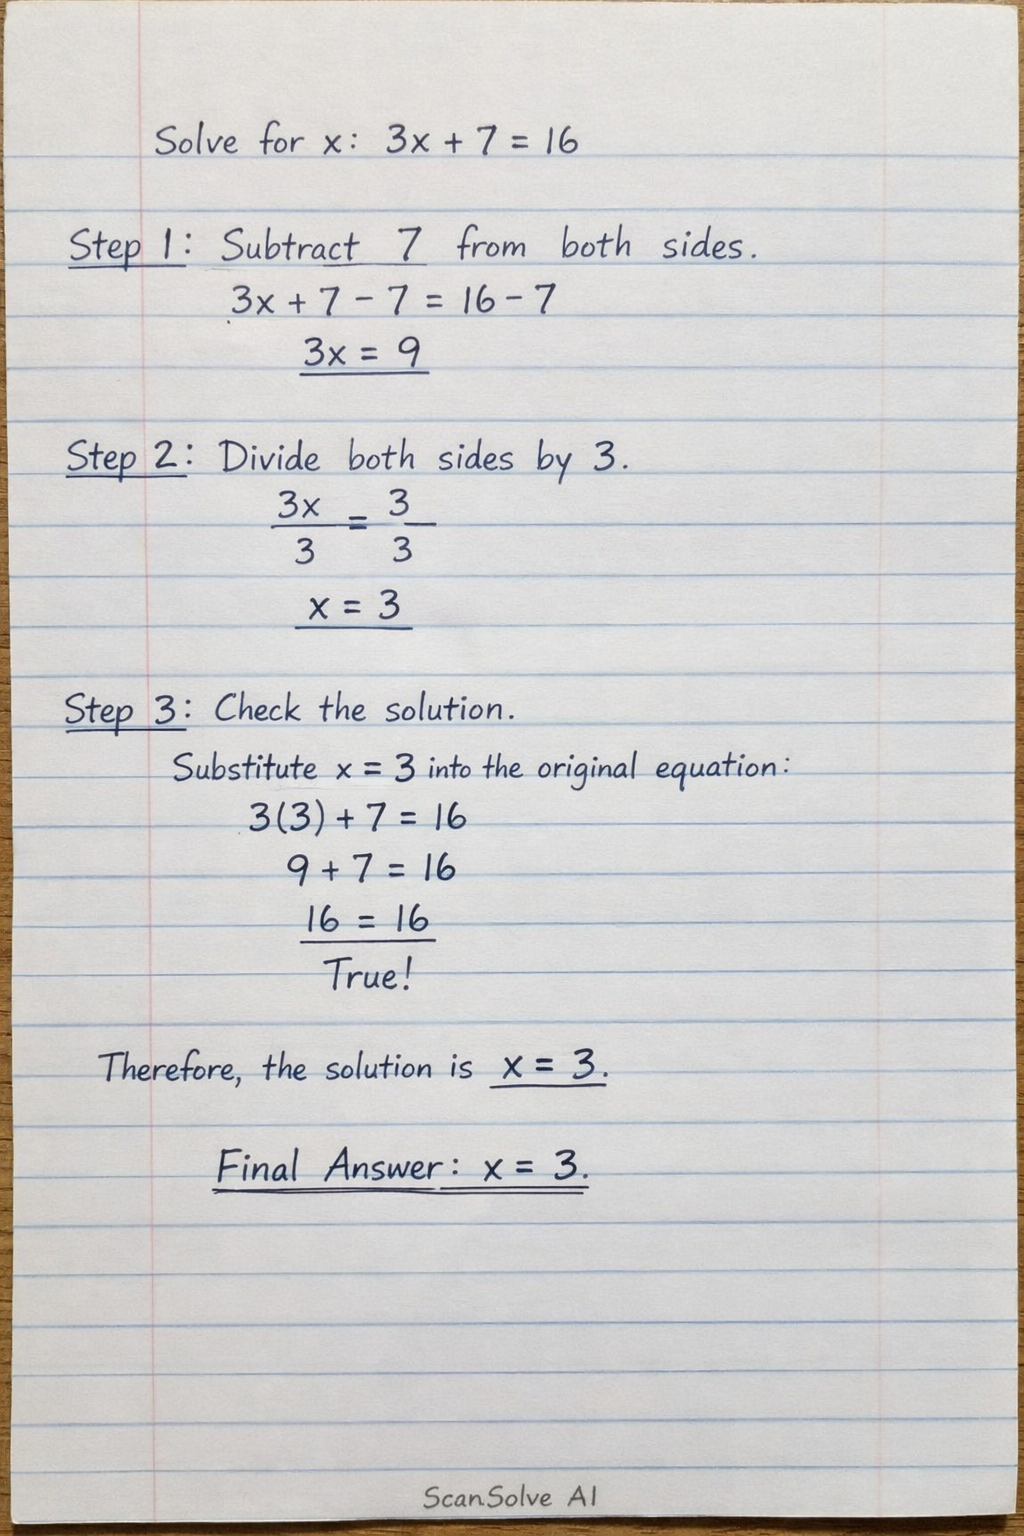 Solve for x: 3x + 7 = 16
Step 1: Subtract 7 from both sides.
3x + 7 - 7 = 16 - 7
3x = 9
Step 2: Divide both sides by 3.
3x = 3
3 3
x = 3
Step 3: Check the solution.
Substitute x = 3 into the original equation:
3(3) + 7 = 16
9 + 7 = 16
16 = 16
True!
Therefore, the solution is x = 3.
Final Answer: x = 3.
ScanSolve AI